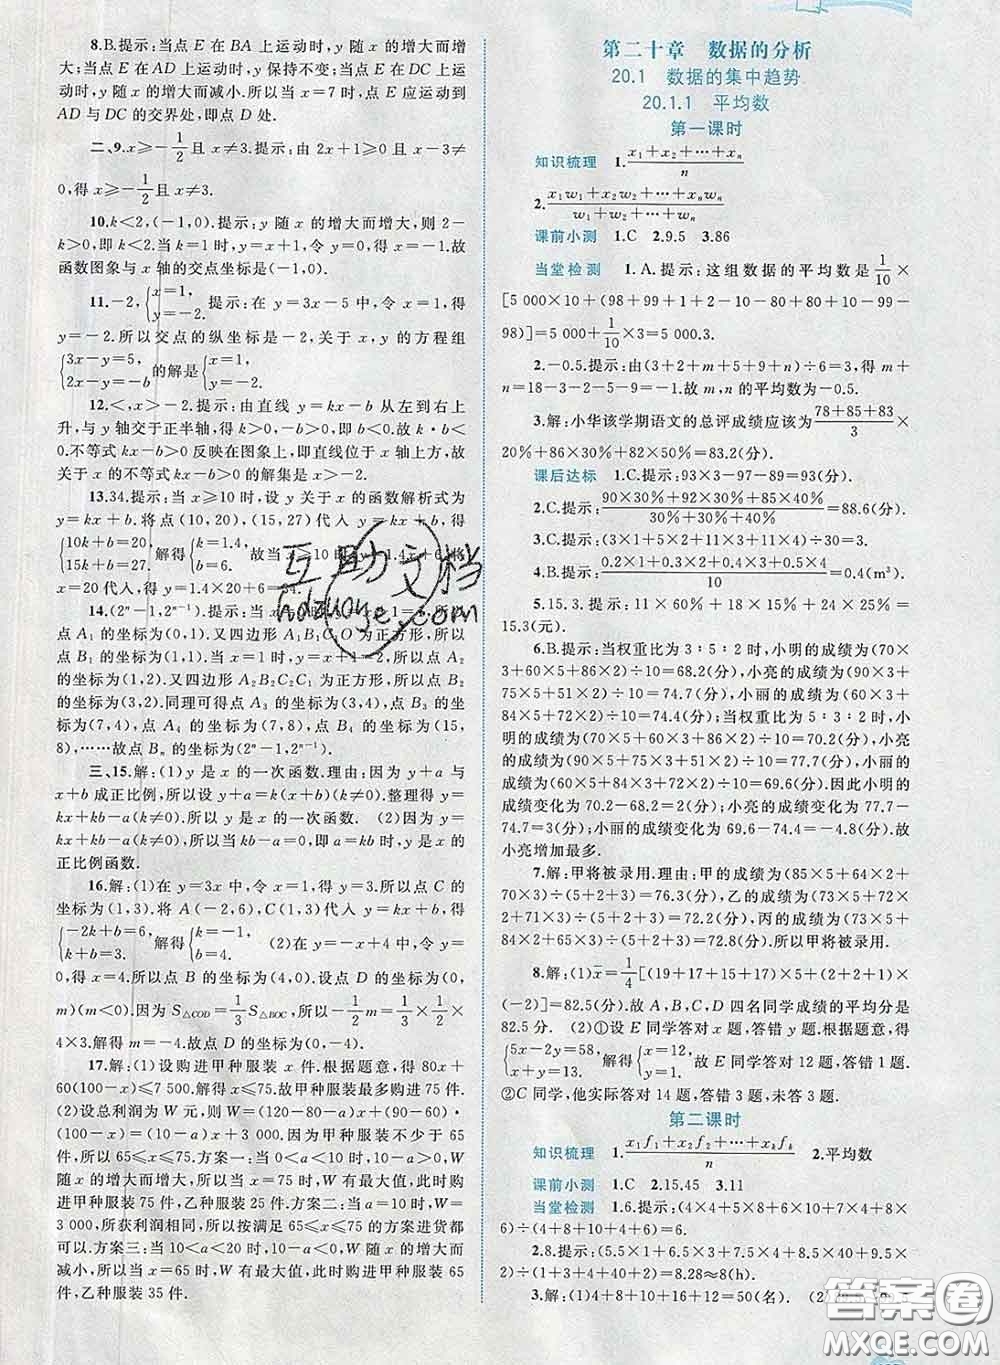 8.B.提示:当点 E 在 BA 上运动时,y 随 x 的增大而增
大;当点 E 在 AD 上运动时,y 保持不变;当点 E 在 DC 上运
动时,y 随 x 的增大而减小.所以当 x=7 时,点 E 应运动到
AD 与 DC 的交界处,即点 D 处.
二、9.x≥-1/2且 x≠3.提示:由 2x+1≥0 且 x-3≠
0,得 x≥-1/2且 x≠3.
10.k<2,(-1,0).提示:y 随 x 的增大而增大,则 2-
k>0,即 k<2.当 k=1 时,y=x+1,令 y=0,得 x=-1.故
函数图象与 x 轴的交点坐标是(-1,0).
11.-2,{x=1, y=-2. 提示:在 y=3x-5 中,令 x=1,得
y=-2.所以交点的纵坐标是-2,关于 x,y 的方程组
{3x-y=5, 2x-y=-b 的解是{x=1, y=-2.
12.<,x>-2.提示:由直线 y=kx-b 从左向右上
升,与 y 轴交于正半轴,得 k>0,-b>0,即 b<0.故 k·b<
0.不等式 kx-b>0 反映在图象上,即直线位于 x 轴上方,故
关于 x 的不等式 kx-b>0 的解集是 x>-2.
13.34.提示:当 x≥10 时,设 y 关于 x 的函数解析式为
y=kx+b.将点(10,20),(15,27)代入 y=kx+b,得
{10k+b=20, 15k+b=27. 解得{k=1.4, b=6. 故当 x≥10 时,y=1.4x+6.将
x=20 代入,得 y=1.4×20+6=34.
14.(2ⁿ-1,2ⁿ⁻¹).提示:当 x=0 时,y=x+1=1.所以
点 A₁ 的坐标为(0,1).又四边形 A₁B₁C₁O 为正方形,所以
点 B₁ 的坐标为(1,1).当 x=1 时,y=x+1=2.所以点 A₂
的坐标为(1,2).又四边形 A₂B₂C₂C₁ 为正方形,所以点 B₂
的坐标为(3,2).同理可得点 A₃ 的坐标为(3,4),点 B₃ 的坐
标为(7,4),点 A₄ 的坐标为(7,8),点 B₄ 的坐标为(15,
8),……故点 Bₙ 的坐标为(2ⁿ-1,2ⁿ⁻¹).
三、15.解:(1)y 是 x 的一次函数.理由:因为 y+a 与
x+b 成正比例,所以设 y+a=k(x+b)(k≠0).整理得 y=
kx+kb-a(k≠0).所以 y 是 x 的一次函数. (2)因为 y=
kx+kb-a(k≠0),所以当 kb-a=0,即 a=kb 时,y 是 x 的
正比例函数.
16.解:(1)在 y=3x 中,令 x=1,得 y=3.所以点 C 的
坐标为(1,3).将 A(-2,6),C(1,3)代入 y=kx+b,得
{-2k+b=6, k+b=3. 解得{k=-1, b=4. (2)在 y=-x+4 中,令 y=
0,得 x=4.所以点 B 的坐标为(4,0).设点 D 的坐标为(0,
m)(m<0).因为 S△COD=1/3S△BOC,所以-1/2m=1/3×1/2×
4×3.解得 m=-4.故点 D 的坐标为(0,-4).
17.解:(1)设购进甲种服装 x 件.根据题意,得 80x+
60(100-x)≤7 500.解得 x≤75.故甲种服装最多购进 75 件.
(2)设总利润为 W 元,则 W=(120-80-a)x+(90-60)·
(100-x)=(10-a)x+3 000.因为甲种服装不少于 65
件,所以 65≤x≤75.方案一:当 0<a<10 时,10-a>0,W
随 x 的增大而增大,所以当 x=75 时,W 有最大值,此时购进
甲种服装 75 件,乙种服装 25 件.方案二:当 a=10 时,W=
3 000,所获利润相同,所以按满足 65≤x≤75 的方案进货都
可以.方案三:当 10<a<20 时,10-a<0,W 随 x 的增大而
减小,所以当 x=65 时,W 有最大值,此时购进甲种服装 65
件,乙种服装 35 件.
第二十章 数据的分析
20.1 数据的集中趋势
20.1.1 平均数
第一课时
知识梳理 1.(x₁+x₂+…+xₙ)/n
2.(x₁w₁+x₂w₂+…+xₙwₙ)/(w₁+w₂+…+wₙ)
课前小测 1.C 2.9.5 3.86
当堂检测 1.A.提示:这组数据的平均数是1/10×
[5 000×10+(98+99+1+2-10-80+80+10-99-
98)]=5 000+1/10×3=5 000.3.
2.-0.5.提示:由(3+2+m+5+9+n)÷6=3,得 m+
n=18-3-2-5-9=-1.故 m,n 的平均数为-0.5.
3.解:小华该学期语文的总评成绩应该为(78+85+83)/3×
20%+86×30%+82×50%=83.2(分).
课后达标 1.C.提示:93×3-97-89=93(分).
2.C.提示:(90×30%+92×30%+85×40%)/(30%+30%+40%)=88.6(分).
3.C.提示:(3×6+2×5+4×11+2×9)÷30=3.
4.B.提示:(0.2×1+0.3×2+0.4×3+0.5×4)/10=0.4(m³).
5.15.3.提示:11×60%+18×15%+24×25%=
15.3(元).
6.B.提示:当权重比为 3∶5∶2 时,小明的成绩为(70×
3+60×5+86×2)÷10=68.2(分),小亮的成绩为(90×3+
75×5+51×2)÷10=74.7(分),小丽的成绩为(60×3+
84×5+72×2)÷10=74.4(分);当权重比为 5∶3∶2 时,小
明的成绩为(70×5+60×3+86×2)÷10=70.2(分),小亮
的成绩为(90×5+75×3+51×2)÷10=77.7(分),小丽的
成绩为(60×5+84×3+72×2)÷10=69.6(分).因此小明的
成绩变化为 70.2-68.2=2(分);小亮的成绩变化为 77.7-
74.7=3(分);小丽的成绩变化为 69.6-74.4=-4.8(分).故
小亮增加最多.
7.解:甲将被录用.理由:甲的成绩为(87×5+64×
2+67×3)÷(5+2+3)=76.3(分),乙的成绩为(75×5+
92×2+54×3)÷(5+2+3)=72.2(分),丙的成绩为(73×5+
84×2+65×3)÷(5+2+3)=72.8(分).所以甲将被录用.
8.解:(1)x̄=1/4[(19+17+15+17)×5+(2+2+1)×
(-2)]=82.5(分).故 A,B,C,D 四名同学成绩的平均分是
82.5 分. (2)①设 E 同学答对 x 题,答错 y 题.根据题意,得
{5x-2y=58, x+y=13. 解得{x=12, y=1. 故 E 同学答对 12 题,答错 1 题.
②C 同学,他实际答对 14 题,答错 3 题,未答 3 题.
第二课时
知识梳理 1.(x₁f₁+x₂f₂+…+xₖfₖ)/n 2.平均数
课前小测 1.C 2.15.45 3.11
当堂检测 1.6.提示:(4×4+5×8+6×10+7×4+8×
6)÷(4+8+10+4+6)=6.
2.8.提示:(5.5×1+6.5×3+7.5×4+8.5×4+9.5×
2)÷(1+3+4+4+2)=8.28≈8(h).
3.解:(1)4+8+10+16+12=50(名). (2)
互助文档
hdzuoye.com
答案圈
MXQE.COM